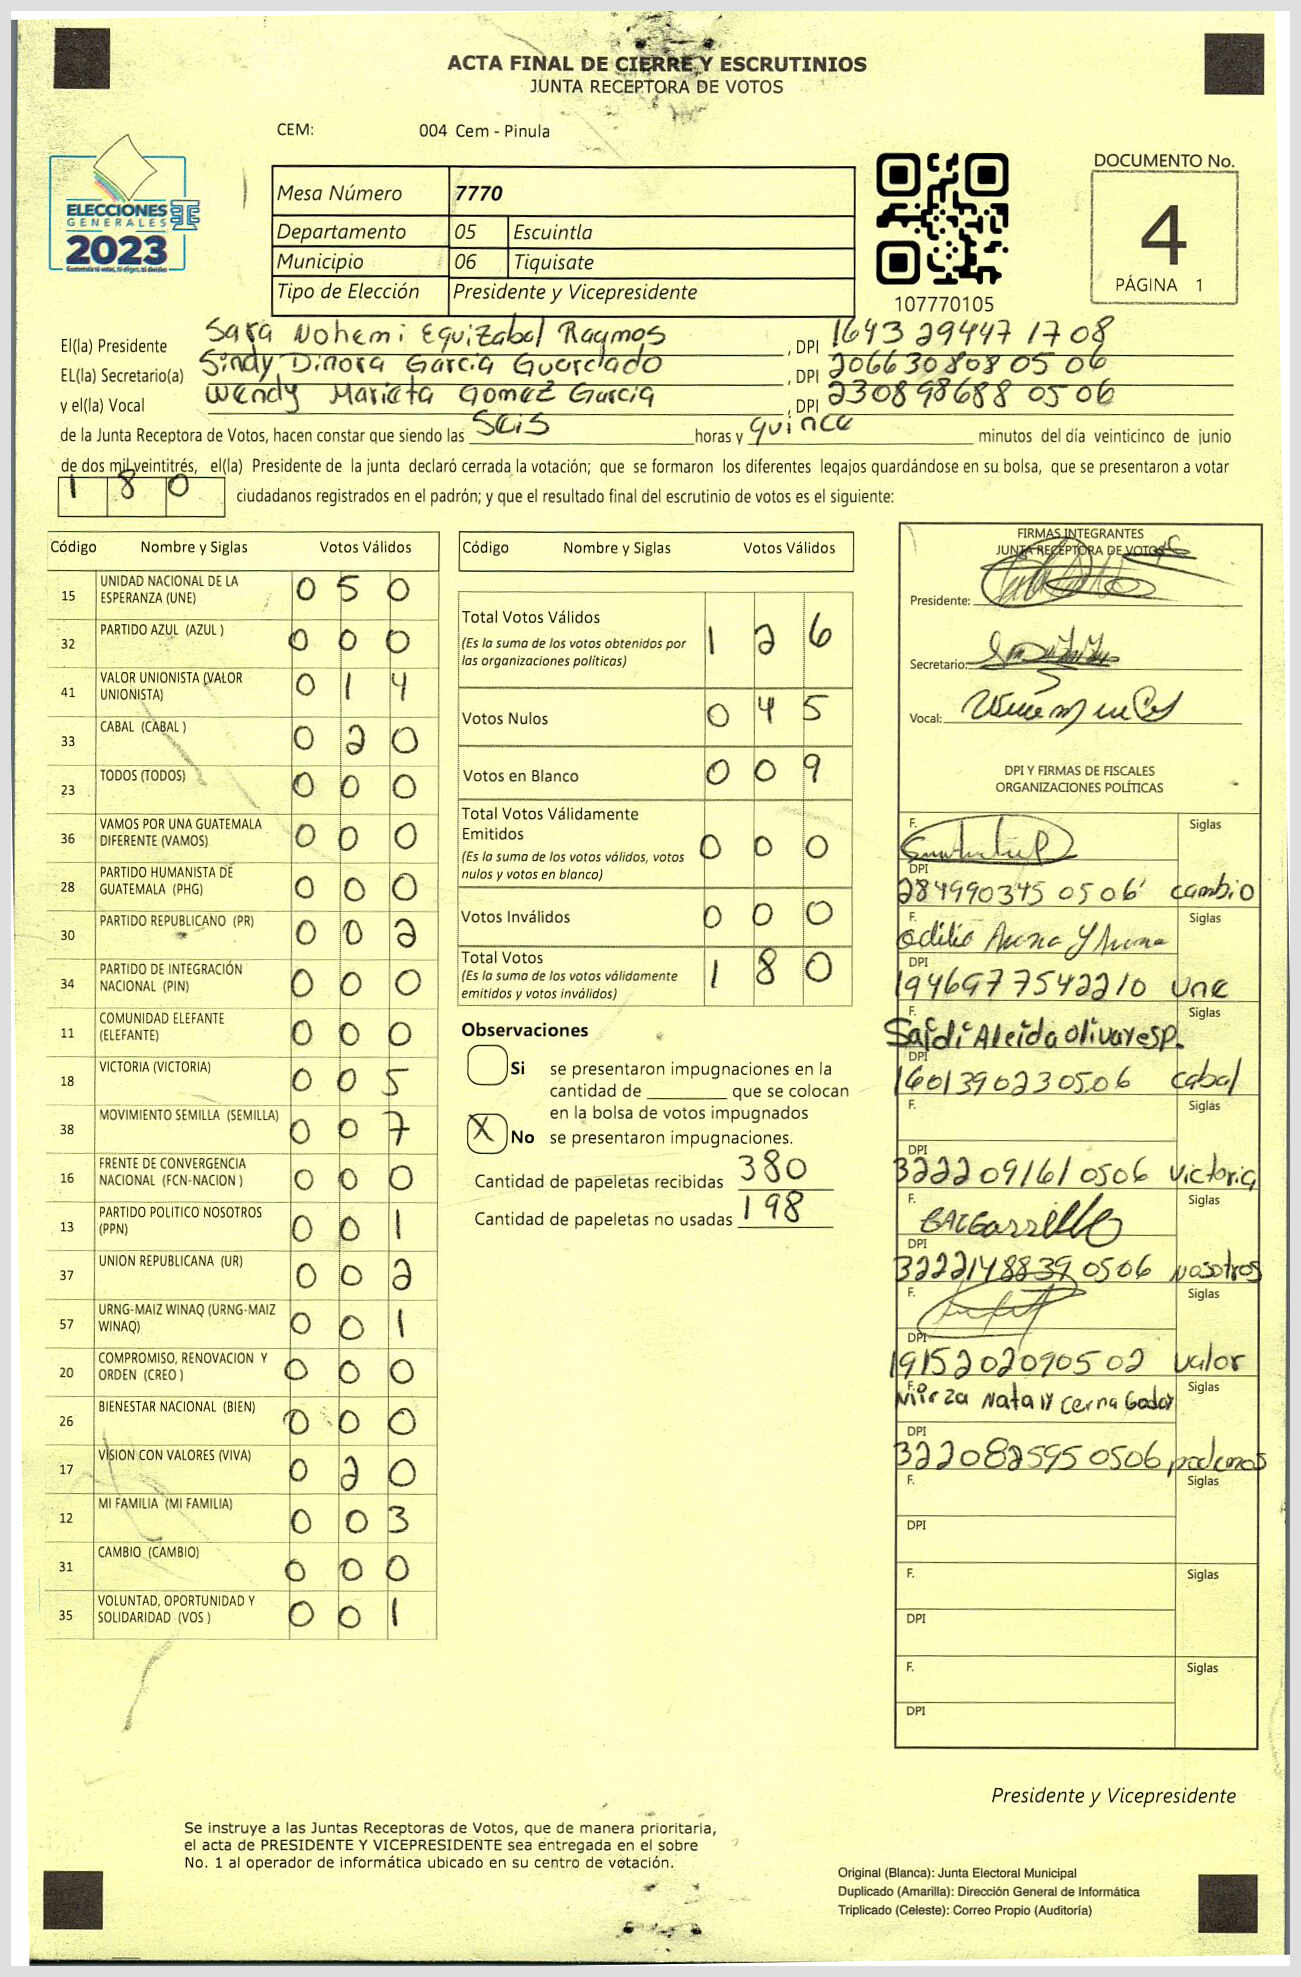 ACTA FINAL DE CIERRE Y ESCRUTINIOS
JUNTA RECEPTORA DE VOTOS
CEM: 004 Cem - Pinula
DOCUMENTO No.
4
PÁGINA 1
ELECCIONES
GENERALES
2023
Mesa Número 7770
Departamento 05 Escuintla
Municipio 06 Tiquisate
Tipo de Elección Presidente y Vicepresidente
107770105
El(la) Presidente Sara Nohemi Equizabal Raymos, DPI 1643 29447 1708
EL(la) Secretario(a) Sindy Dinora Garcia Guardado, DPI 206630808 0506
y el(la) Vocal Wendy Marieta Gomez Garcia, DPI 230898688 0506
de la Junta Receptora de Votos, hacen constar que siendo las Seis horas y quince minutos del día veinticinco de junio
de dos mil veintitrés, el(la) Presidente de la junta declaró cerrada la votación; que se formaron los diferentes legajos guardándose en su bolsa, que se presentaron a votar
1 8 0 ciudadanos registrados en el padrón; y que el resultado final del escrutinio de votos es el siguiente:
Código Nombre y Siglas Votos Válidos
15 UNIDAD NACIONAL DE LA ESPERANZA (UNE) 0 5 0
32 PARTIDO AZUL (AZUL ) 0 0 0
41 VALOR UNIONISTA (VALOR UNIONISTA) 0 1 4
33 CABAL (CABAL ) 0 2 0
23 TODOS (TODOS) 0 0 0
36 VAMOS POR UNA GUATEMALA DIFERENTE (VAMOS) 0 0 0
28 PARTIDO HUMANISTA DE GUATEMALA (PHG) 0 0 0
30 PARTIDO REPUBLICANO (PR) 0 0 2
34 PARTIDO DE INTEGRACIÓN NACIONAL (PIN) 0 0 0
11 COMUNIDAD ELEFANTE (ELEFANTE) 0 0 0
18 VICTORIA (VICTORIA) 0 0 5
38 MOVIMIENTO SEMILLA (SEMILLA) 0 0 7
16 FRENTE DE CONVERGENCIA NACIONAL (FCN-NACION ) 0 0 0
13 PARTIDO POLITICO NOSOTROS (PPN) 0 0 1
37 UNION REPUBLICANA (UR) 0 0 2
57 URNG-MAIZ WINAQ (URNG-MAIZ WINAQ) 0 0 1
20 COMPROMISO, RENOVACION Y ORDEN (CREO ) 0 0 0
26 BIENESTAR NACIONAL (BIEN) 0 0 0
17 VISION CON VALORES (VIVA) 0 2 0
12 MI FAMILIA (MI FAMILIA) 0 0 3
31 CAMBIO (CAMBIO) 0 0 0
35 VOLUNTAD, OPORTUNIDAD Y SOLIDARIDAD (VOS ) 0 0 1
Código Nombre y Siglas Votos Válidos
Total Votos Válidos 1 2 6
(Es la suma de los votos obtenidos por
las organizaciones políticas)
Votos Nulos 0 4 5
Votos en Blanco 0 0 9
Total Votos Válidamente
Emitidos 0 0 0
(Es la suma de los votos válidos, votos
nulos y votos en blanco)
Votos Inválidos 0 0 0
Total Votos 1 8 0
(Es la suma de los votos válidamente
emitidos y votos inválidos)
Observaciones
Si se presentaron impugnaciones en la
cantidad de ________ que se colocan
en la bolsa de votos impugnados
X No se presentaron impugnaciones.
Cantidad de papeletas recibidas 380
Cantidad de papeletas no usadas 198
FIRMAS INTEGRANTES
JUNTA RECEPTORA DE VOTOS
Presidente:
Secretario:
Vocal:
DPI Y FIRMAS DE FISCALES
ORGANIZACIONES POLÍTICAS
F. Siglas
DPI
284990345 0506 cambio
F. Siglas
Odilio
DPI
1946977542210 une
F. Siglas
Saidi Aleida Olivares P.
DPI
1601390230506 cabal
F. Siglas
DPI
3222091610506 victoria
F. Siglas
DPI
3222148839 0506 nosotros
F. Siglas
DPI
1915202090502 valor
F. Siglas
Mirza Nataly Cerna Godoy
DPI
322082595 0506 podemos
F. Siglas
DPI
F. Siglas
DPI
F. Siglas
DPI
Presidente y Vicepresidente
Se instruye a las Juntas Receptoras de Votos, que de manera prioritaria,
el acta de PRESIDENTE Y VICEPRESIDENTE sea entregada en el sobre
No. 1 al operador de informática ubicado en su centro de votación.
Original (Blanca): Junta Electoral Municipal
Duplicado (Amarilla): Dirección General de Informática
Triplicado (Celeste): Correo Propio (Auditoría)